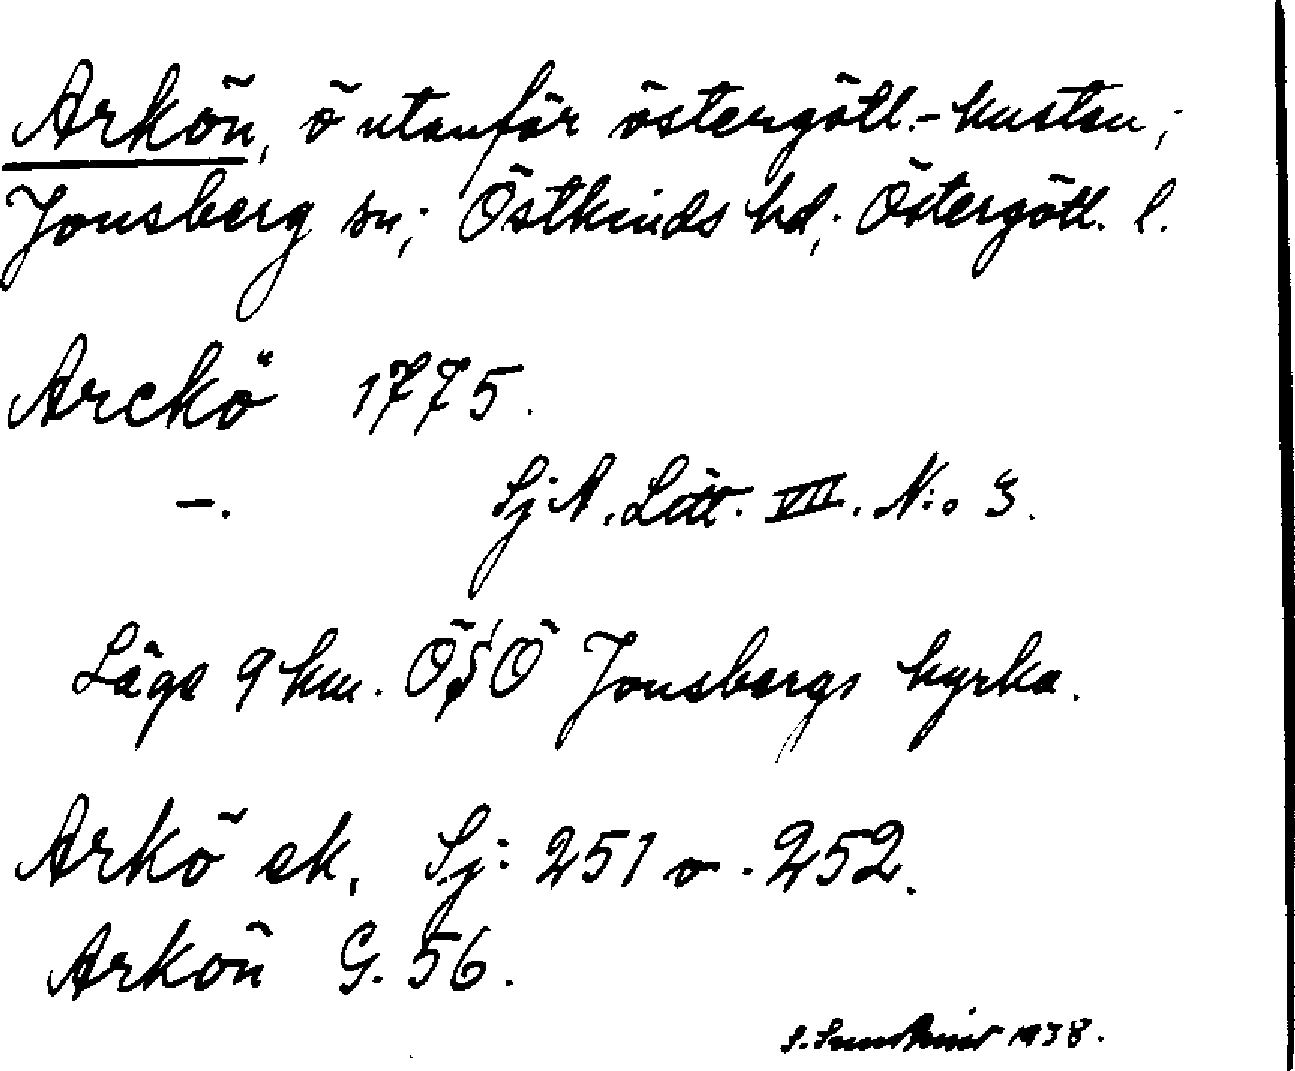 Arkön, ö utanför östergötl.-kusten;
Jonsberg sn; Östkinds hd; Östergötl. l.
Arckö 1775.
-. SjA. Litt. VII. N:o 3.
Läge 9 km. ÖSÖ Jonsbergs kyrka.
Arkö ek. Sj: 251 o. 252.
Arkön G. 56.
1938.